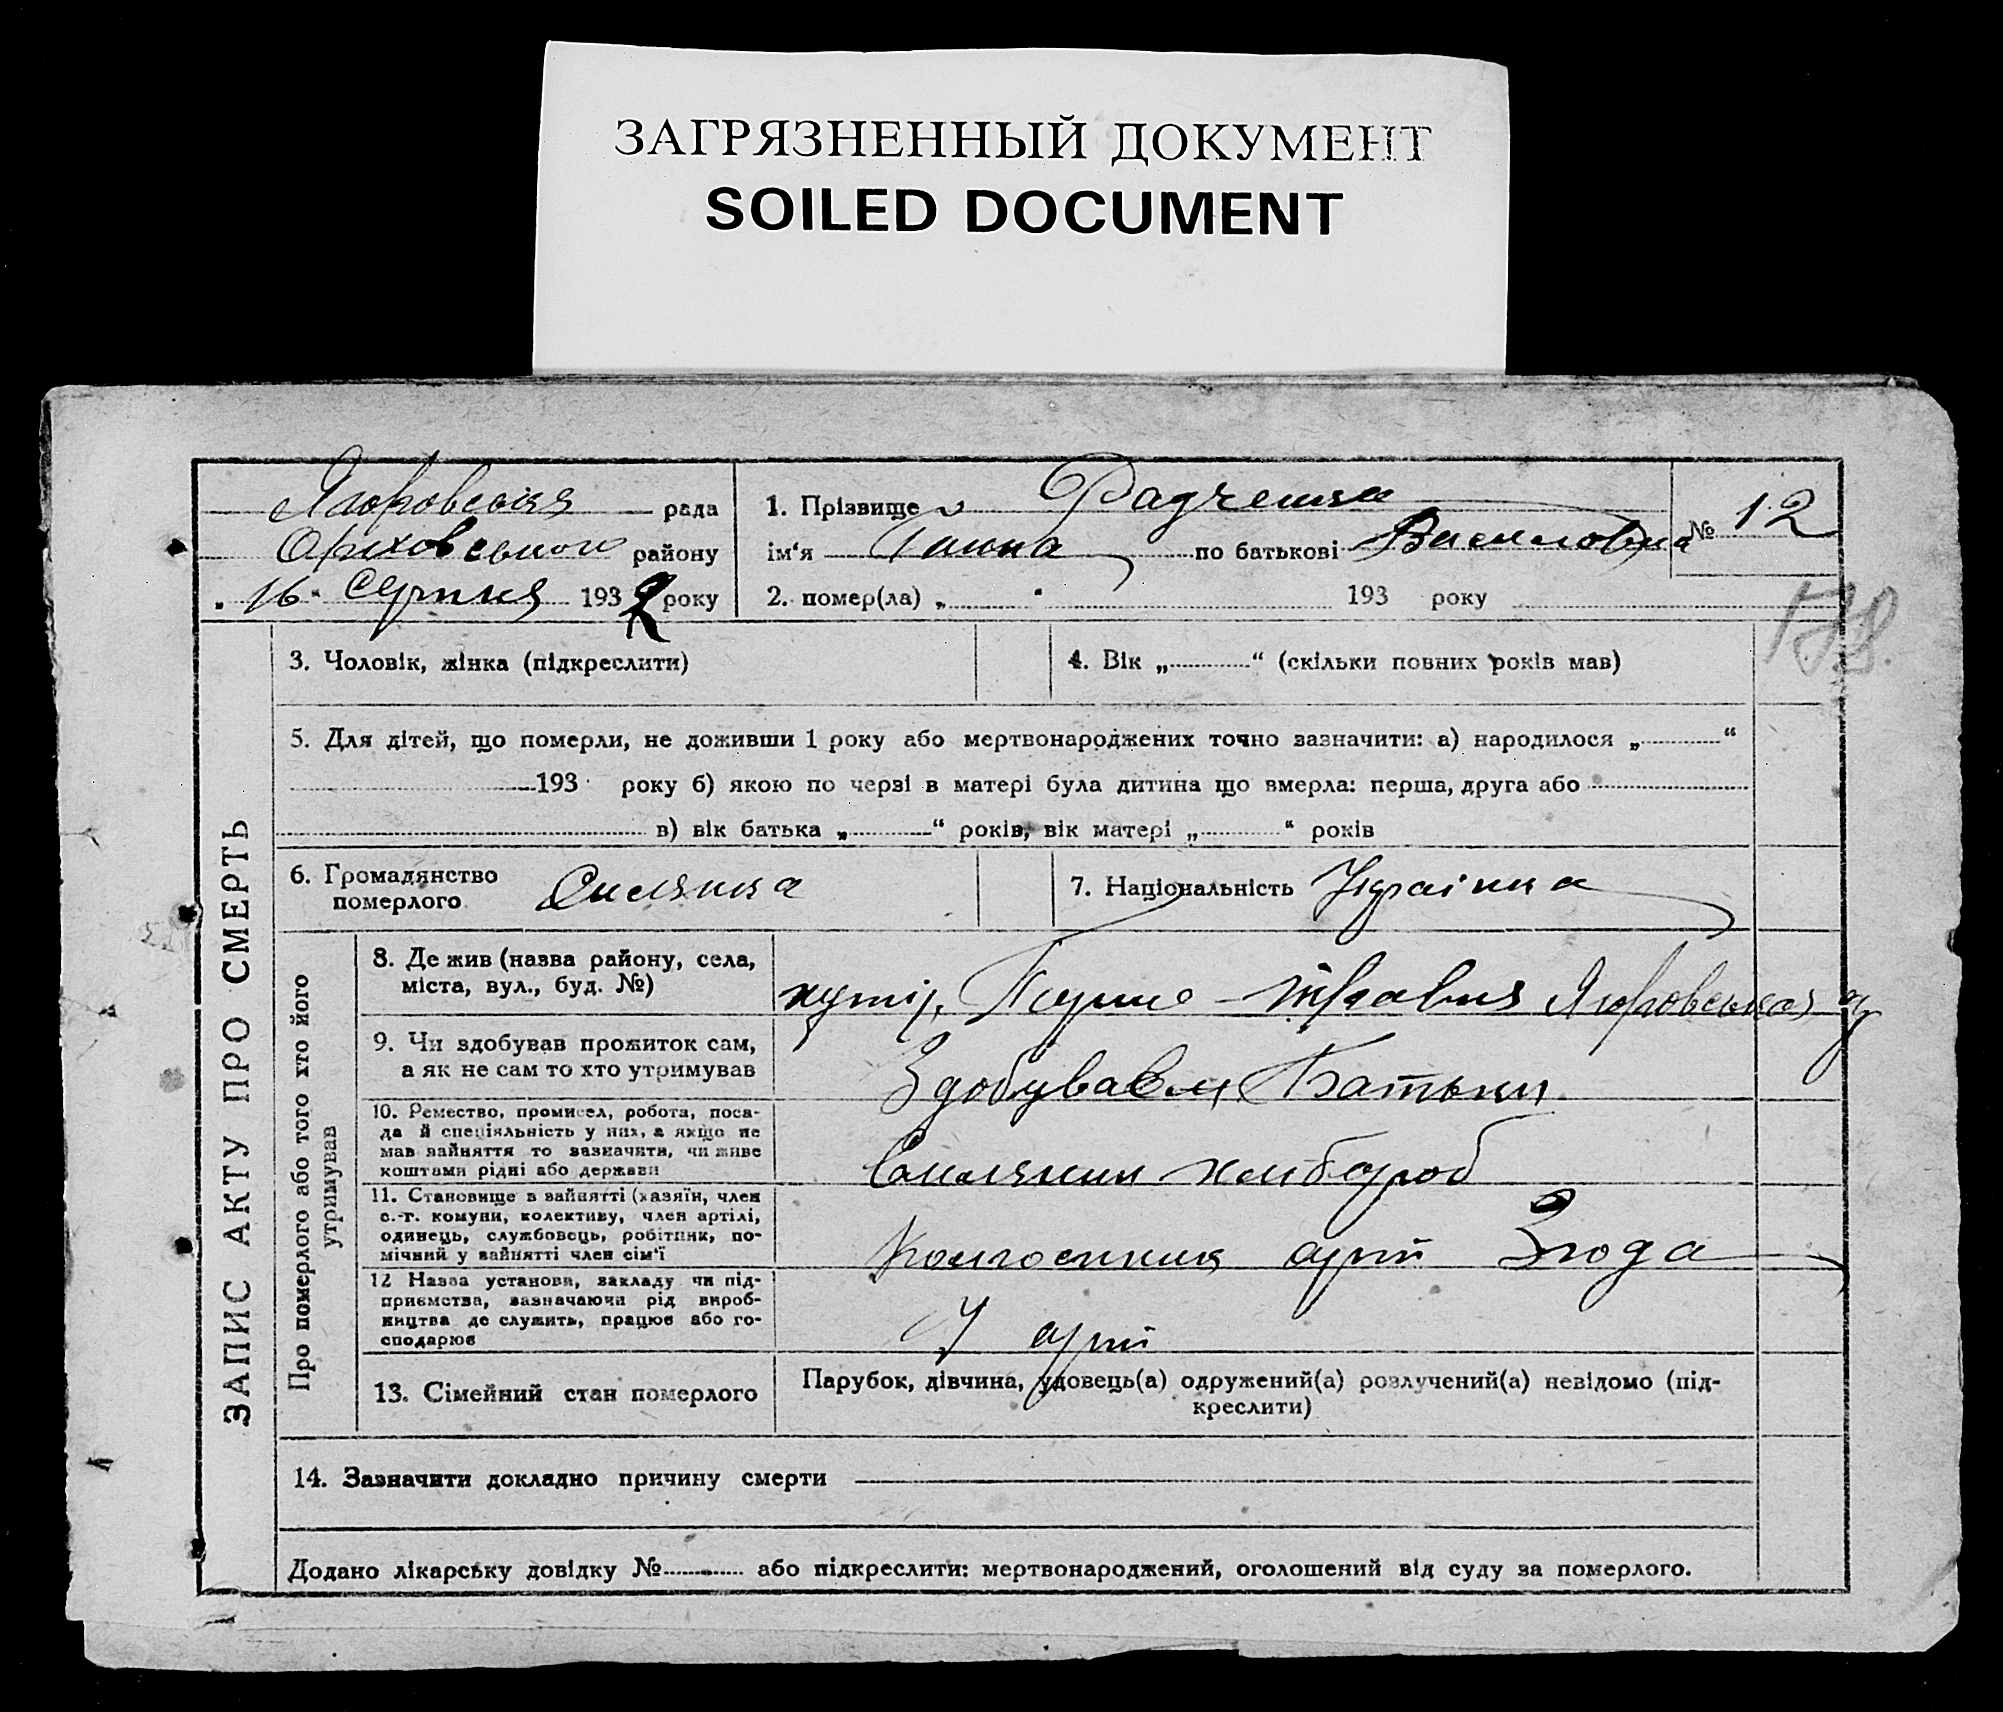 ЗАГРЯЗНЕННЫЙ ДОКУМЕНТ
SOILED DOCUMENT
рада
району
„16“ Серпня 1932 року
1. Прізвище Радченко
ім‘я Ганна по батькові Василовна
№ 12
2. помер(ла) „ “ 193 року
178.
ЗАПИС АКТУ ПРО СМЕРТЬ
3. Чоловік, жінка (підкреслити)
4. Вік „ “ (скільки повних років мав)
5. Для дітей, що померли, не доживши 1 року або мертвонароджених точно зазначити: а) народилося „ “
193 року б) якою по черзі в матері була дитина що вмерла: перша, друга або
в) вік батька „ “ років, вік матері „ “ років
6. Громадянство
померлого Силянка
7. Національність Українка
Про померлого або того хто його
утримував
8. Де жив (назва району, села,
міста, вул., буд. №)
хутір
9. Чи здобував прожиток сам,
а як не сам то хто утримував
Здобували Батьки
10. Ремество, промисел, робота, поса-
да й спеціяльність у них, а якщо не
мав зайняття то зазначити, чи живе
коштами рідні або держави
Силянин хлібороб
11. Становище в зайнятті (хазяїн, член
с.-г. комуни, колективу, член артілі,
одинець, службовець, робітник, по-
мічний у зайнятті член сім‘ї
Колгоспник арті Згода
12 Назва установи, закладу чи під-
приємства, зазначаючи рід вироб-
ництва де служить, працює або го-
сподарює
У арті
13. Сімейний стан померлого
Парубок, дівчина, удовець(а) одружений(а) розлучений(а) невідомо (під-
креслити)
14. Зазначити докладно причину смерти
Додано лікарську довідку № або підкреслити: мертвонароджений, оголошений від суду за померлого.